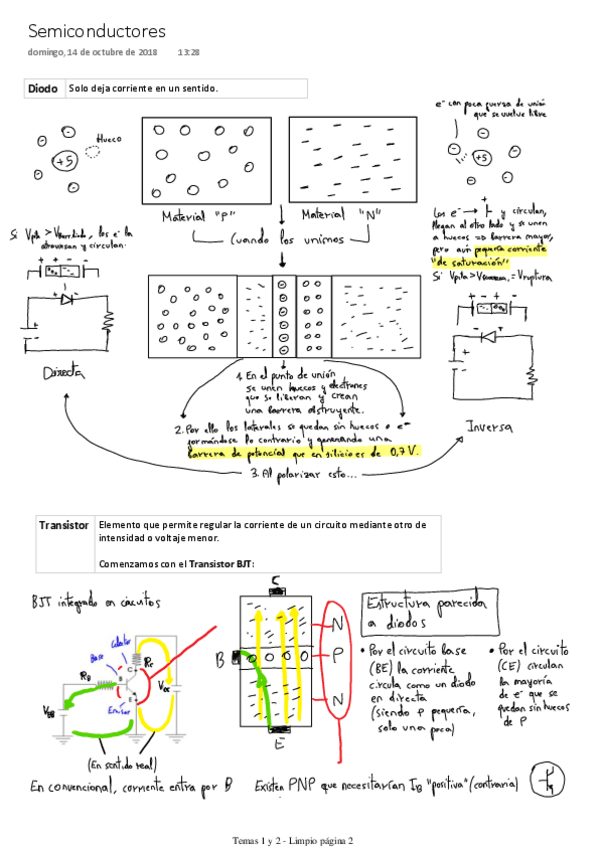 Semiconductores
domingo, 14 de octubre de 2018 13:28
Diodo Solo deja corriente en un sentido.
e⁻ con poca fuerza de unión
que se vuelve libre
Hueco
+5
+5
Material "P" Material "N"
Cuando los unimos
Si Vpila > V
, los e⁻ la
atraviesan y circulan.
Los e⁻ → y circulan,
llegan al otro lado y se unen
a huecos => barrera mayor,
pero aún pequeña corriente
"de saturación"
Si Vpila > = Vruptura
Directa
Inversa
1. En el punto de unión
se unen huecos y electrones
que se liberan y crean
una barrera obstruyente.
2. Por ello los laterales se quedan sin huecos o e⁻
formándose lo contrario y generando una
barrera de potencial que en silicio es de 0,7 V.
3. Al polarizar esto...
Transistor Elemento que permite regular la corriente de un circuito mediante otro de
intensidad o voltaje menor.
Comenzamos con el Transistor BJT:
BJT integrado en circuitos
Colector
Base
RB
RC
C
B
E
Emisor
VBB
VCC
(En sentido real)
En convencional, corriente entra por B
C
B
E
N
P
N
Estructura parecida
a diodos
• Por el circuito base
(BE) la corriente
circula como un diodo
en directa
(siendo P pequeña,
solo una poca)
• Por el circuito
(CE) circulan
la mayoría
de e⁻ que se
quedan sin huecos
de P
Existen PNP que necesitarían IB "positiva" (contraria)
Temas 1 y 2 - Limpio página 2